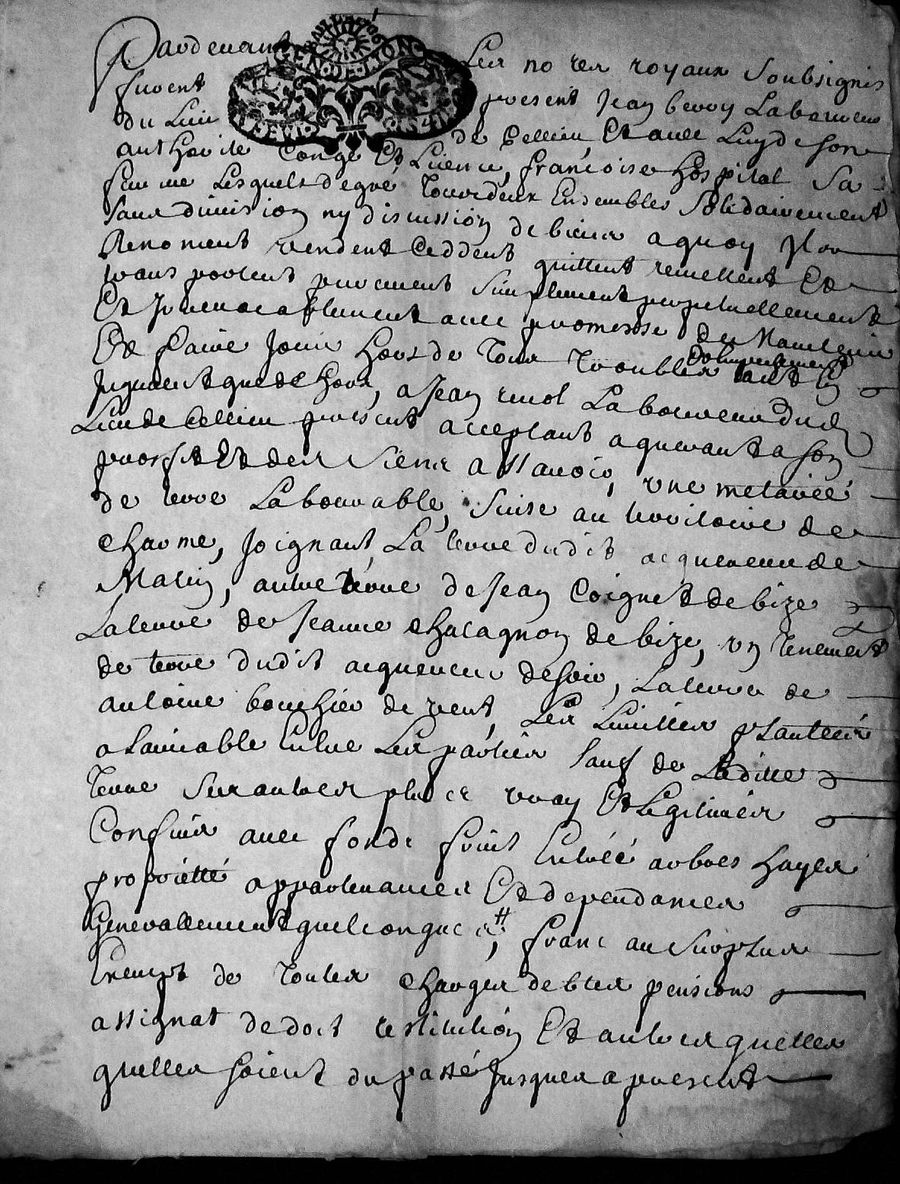 GEN DE LION
Pardevant Les no res royaux Soubsignes
furent present Jean berry Laboureur
du Lieu de Cellieu Et avec Luy de son
authorite Congé Et Licence, francoise hospital Sa
femme Lesquels degré Tous deux Ensembles Solidairement
Sans division ny discussion de biens a quoy Ils
Renoncent vendent Ceddent quittent remettent Et
transportent purement Simplement perpetuellement
Et Irrevocablement avec promesse de Maintenir
Et faire Jouir hors de Tous Troubles tant En
Jugement que dehors, a Jean rivol Laboureur dud
Lieu de Cellieu present acceptant aquerant a son
proffit Et des Siens a Scavoir, une metairée
de terre Labourable, Scise au territoire de
charme, Joignant La terre dudit acquereur de
Matin, autre terre de Jean Coignet de bize
La terre de Jeanne chatagnon de bize, un tenement
de terre dudit acquereur de soir, La terre de
antoine bouchier de vent, Les Limittes plantées
a Lamiable Entre Les parties Sauf de Laditte
terre Ses autres plus vray Et Legitimes
Confins avec fonds fruit Entrée arbres hayes
proprietté appartenances Et dependances
Generallement quelconques #, franc au Surplus
Exempt de Toutes charges debtes pensions
assignat de dot restitution Et autres quelles
quelles soient du passé Jusques a present